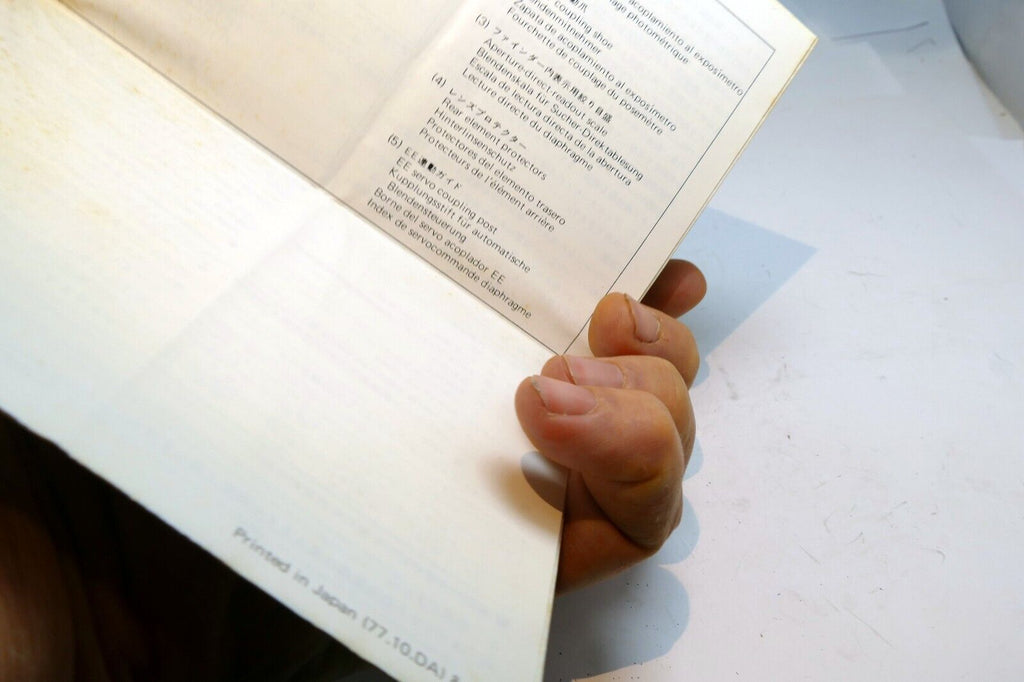 acoplamiento al exposímetro
age photométrique
coupling shoe
Zapata de acoplamiento al exposímetro
Fourchette de couplage du posemètre
(3) ファインダー内表示用絞り目盛
Aperture-direct-readout scale
Blendenskala für Sucher-Direktablesung
Escala de lectura directa de la abertura
Lecture directe du diaphragme
(4) レンズプロテクター
Rear element protectors
Hinterlinsenschutz
Protectores del elemento trasero
Protecteurs de l'élément arrière
(5) EE連動ガイド
EE servo coupling post
Kupplungsstift für automatische
Blendensteuerung
Borne del servo acoplador EE
Index de servocommande diaphragme
Printed in Japan (77.10.DA)